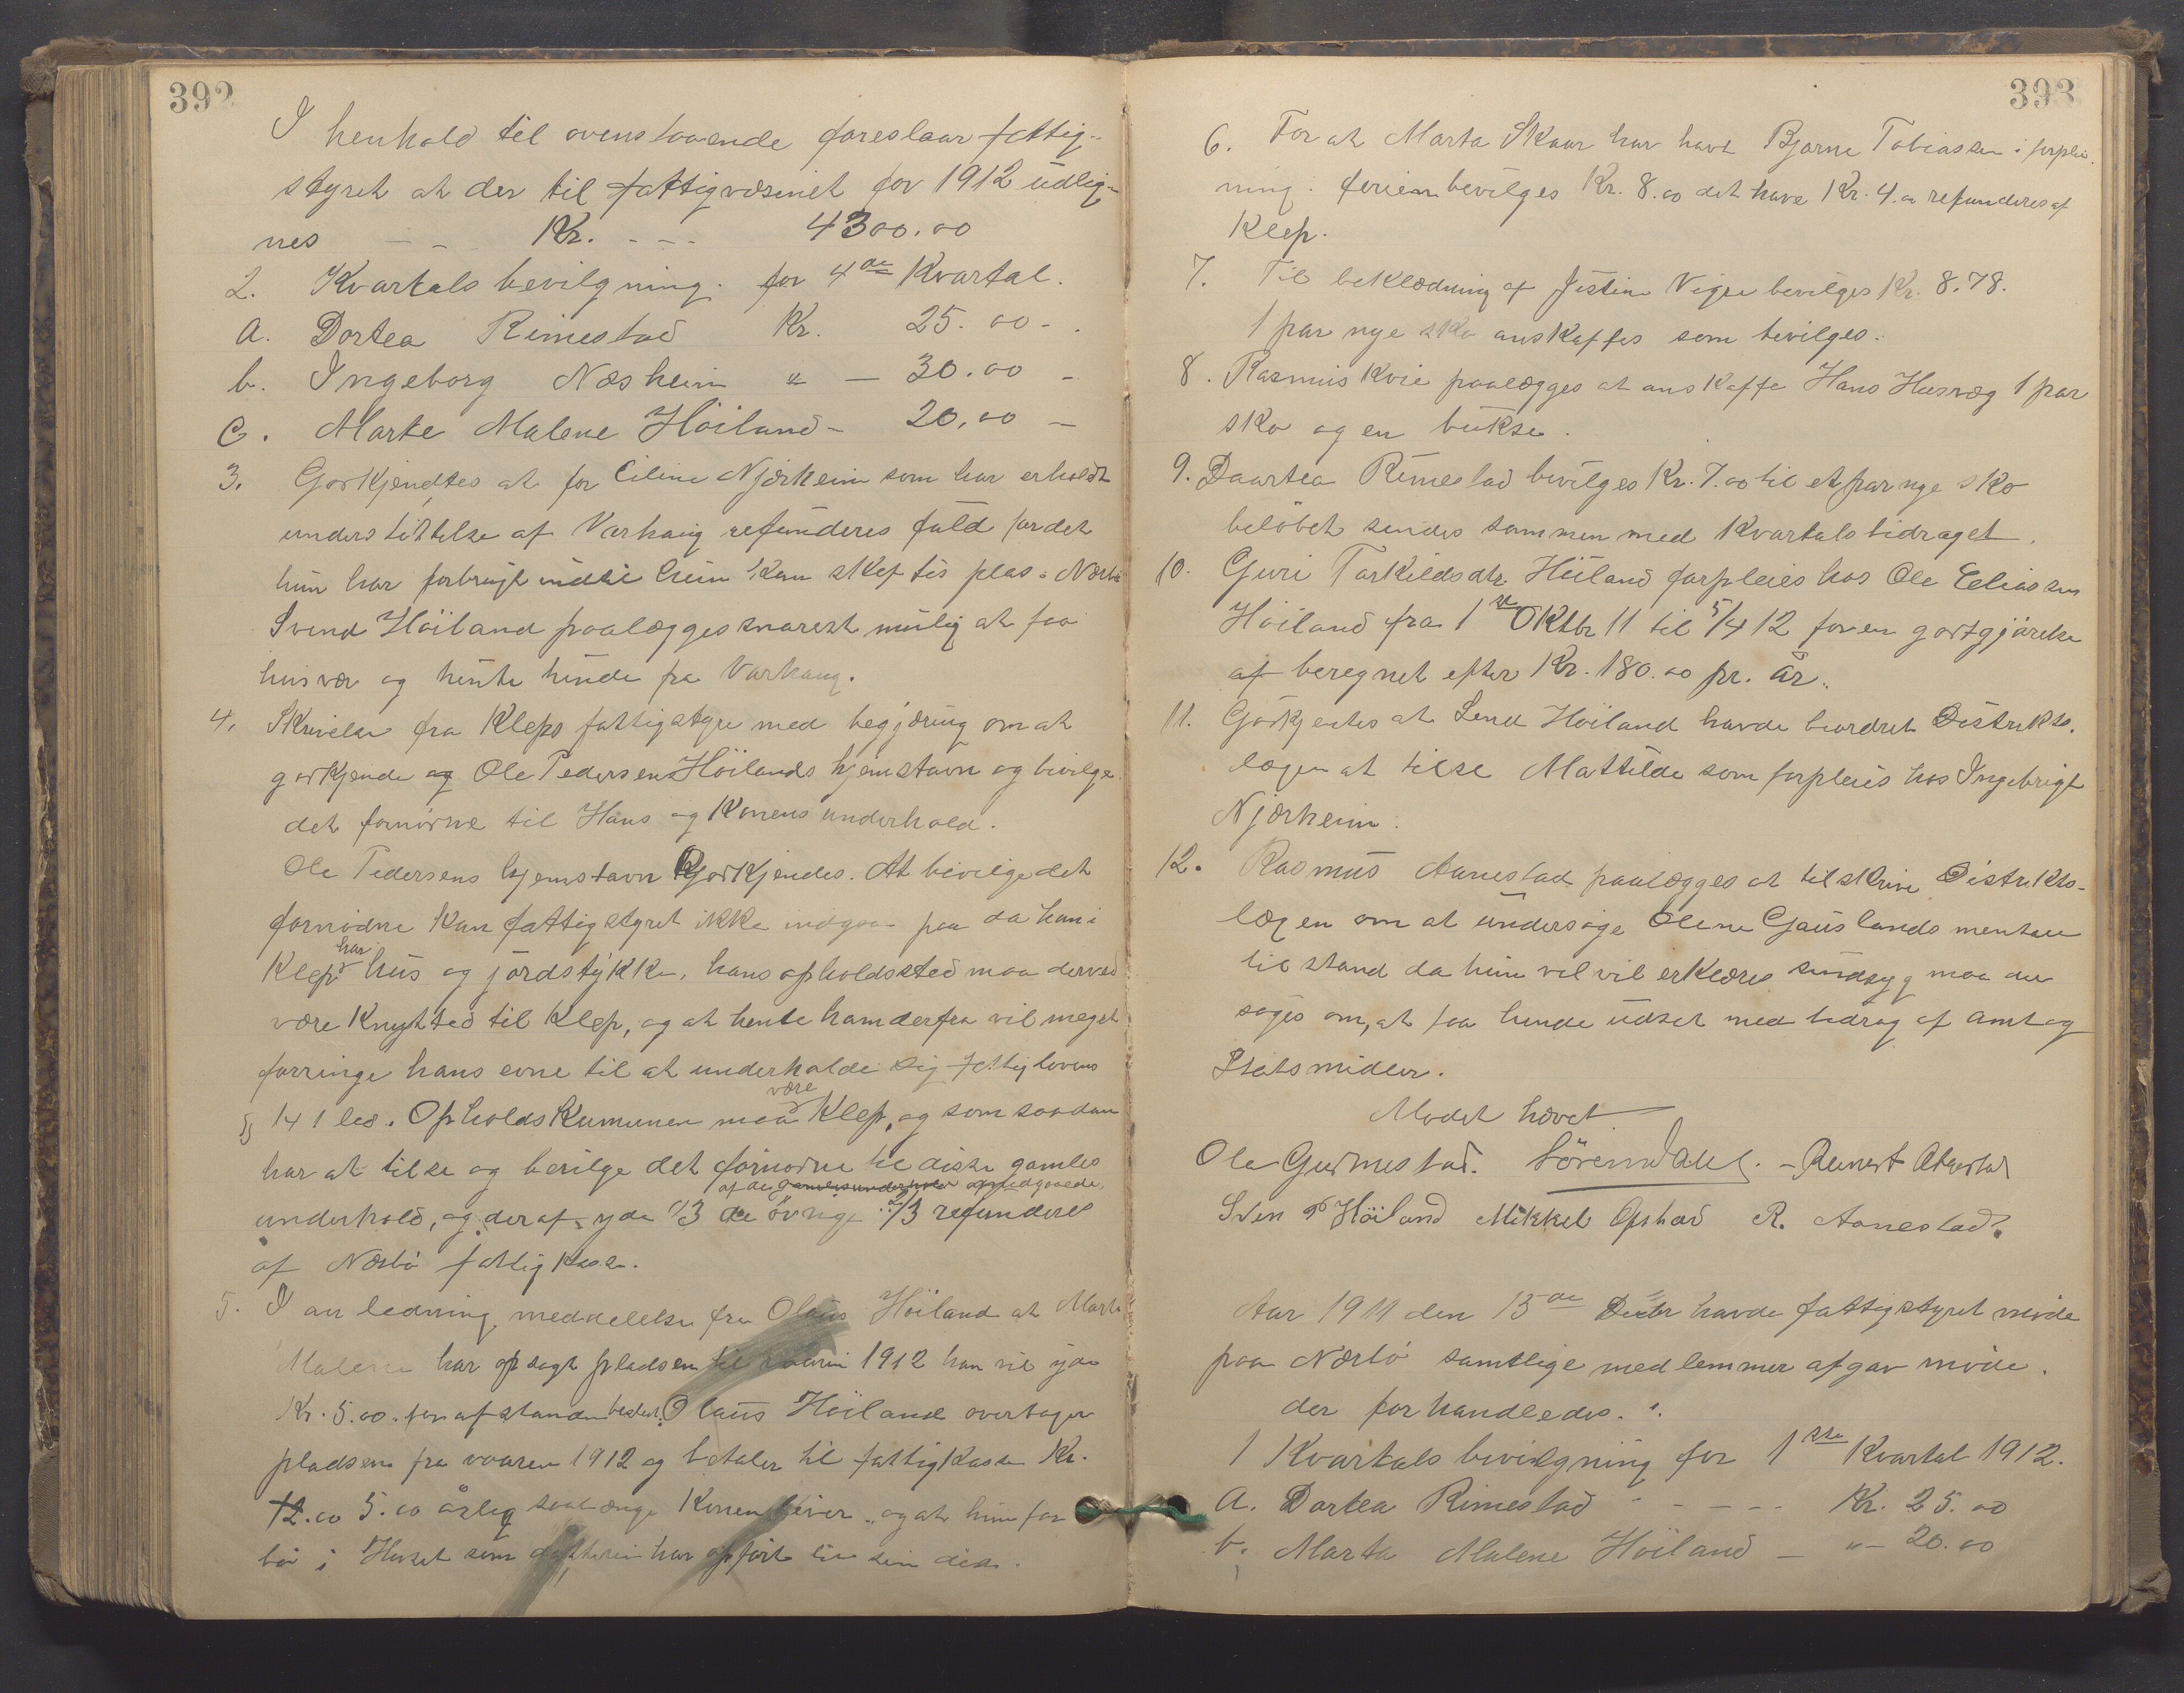 392
I henhold til ovenstaaende foreslaar fattig-
styret at der til fattigvæsenet for 1912 udlig-
nes - - Kr. - - - 4300.00
2. Kvartals bevilgning. for 4de Kvartal.
a. Dortea Rimestad Kr. 25.00 -
b. Ingeborg Næsheim " - 30.00 -
c. Marte Malene Höiland - 20.00 -
3. Godkjendtes at for Eiline Njærheim som har erholdt
understöttelse af Varhaug refunderes fuld for det
hun har forbrugt indtil hun kan skaffes plas i Nærbö
Svend Höiland paalægges snarest mulig at faa
husvær og hente hende fra Varhaug.
4. Skrivelse fra Kleps fattigstyre med begjæring om at
godkjende og Ole Pedersen Höilands hjemstavn og bevilge
det fornödne til Hans og Konens underhold.
Ole Pedersens hjemstavn Godkjendes. At bevilge det
fornödne kan fattigstyret ikke indgaa paa da han i
Klep har hus og jordstykke, hans opholdssted maa derved
være Knytted til Klep, og at hente ham derfra vil meget
forringe hans evne til at underholde sig fattiglovens
§ 14 1 led. Opholds Kumunen maa være Klep, og som saadan
har at tilse og bevilge det fornödne til disse gamles
af de gamles underhold
underhold, og deraf yde 1/3 de övrige 2/3 refunderes
af Nærbö fattigkasse.
5. I anledning meddelelse fra Olaus Höiland at Marte
Malene har opsagt pladsen til vaaren 1912 han vil yde
Kr. 5.00. for afstanden Olaus Höiland overtager
pladsen fra vaaren 1912 og betaler til fattigkassen Kr.
12.00 5.00 årlig saalænge Konen lever, og at hun faar
bo i Huset som datteren har opført til sin död.
393
6. For at Marta Skaar har havt Bjarne Tobiassen i forplei-
ning i ferien bevilges Kr. 8.00 det halve Kr. 4.00 refunderes af
Klep.
7. Til beklædning af Jestine Vigre bevilges Kr. 8.78.
1 par nye sko anskaffes som bevilges.
8. Rasmus Kvie paalægges at anskaffe Hans Husvæg 1 par
sko og en bukse.
9. Daartea Rimestad bevilges Kr. 7.00 til et par nye sko
belöbet sendes sammen med Kvartalsbidraget.
10. Guri Torkildsdtr. Höiland forpleies hos Ole Eeliassen
Höiland fra 1ste Oktbr 11 til 5/4 12 for en godtgjörelse
af beregnet efter Kr. 180.00 pr. år.
11. Godkjentes at Send Höiland havde beordret Distrikts-
lægen at tilse Mattilde som forpleies hos Ingebrigt
Njærheim.
12. Rasmus Aanestad paalægges at tilskrive Distrikts-
lægen om at undersöge Olene Gauslands mentale
tilstand da hun vel vil erklæres sindsyg maa an
söges om, at faa hende udsat med bidrag af amt og
Statsmidler.
Mödet hævet
Ole Gudmestad. Sören Dahl. - Reinert Obrestad
Sven P Höiland Mikkel Opstad R. Aanestad.
Aar 1911 den 13de Decbr havde fattigstyret möde
paa Nærbö samtlige medlemmer afgav möde.
der forhandledes.
1 Kvartals bevilgning for 1ste Kvartal 1912.
a. Dortea Rimestad - - - - - Kr. 25.00
b. Marta Malene Höiland - " - 20.00